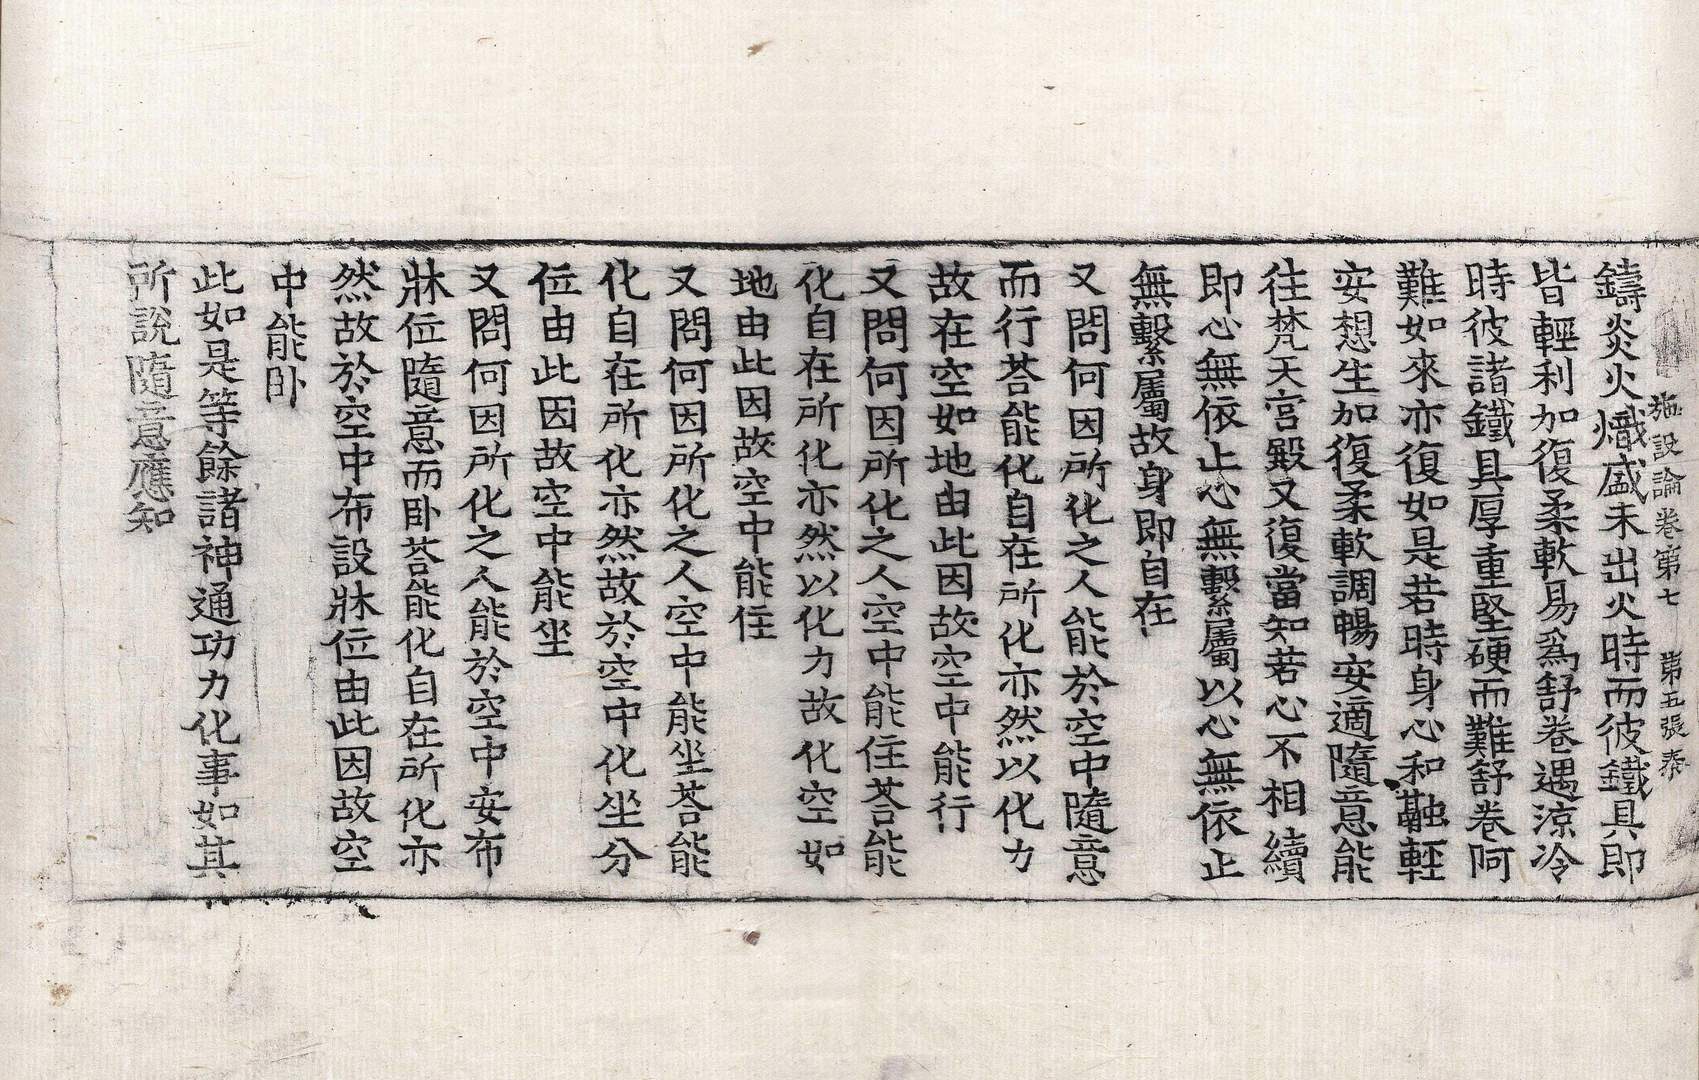 施設論卷第七 第五張 泰
鑄炎火熾盛未出火時而彼鐵具即
皆輕利加復柔軟易爲舒卷遇涼冷
時彼諸鐵具厚重堅硬而難舒卷阿
難如來亦復如是若時身心和融輕
安想生加復柔軟調暢安適隨意能
往梵天宮殿又復當知若心不相續
即心無依止心無繫屬以心無依止
無繫屬故身即自在
又問何因所化之人能於空中隨意
而行荅能化自在所化亦然以化力
故在空如地由此因故空中能行
又問何因所化之人空中能住荅能
化自在所化亦然以化力故化空如
地由此因故空中能住
又問何因所化之人空中能坐荅能
化自在所化亦然故於空中化坐分
位由此因故空中能坐
又問何因所化之人能於空中安布
牀位隨意而卧荅能化自在所化亦
然故於空中布設牀位由此因故空
中能卧
此如是等餘諸神通功力化事如其
所說隨意應知